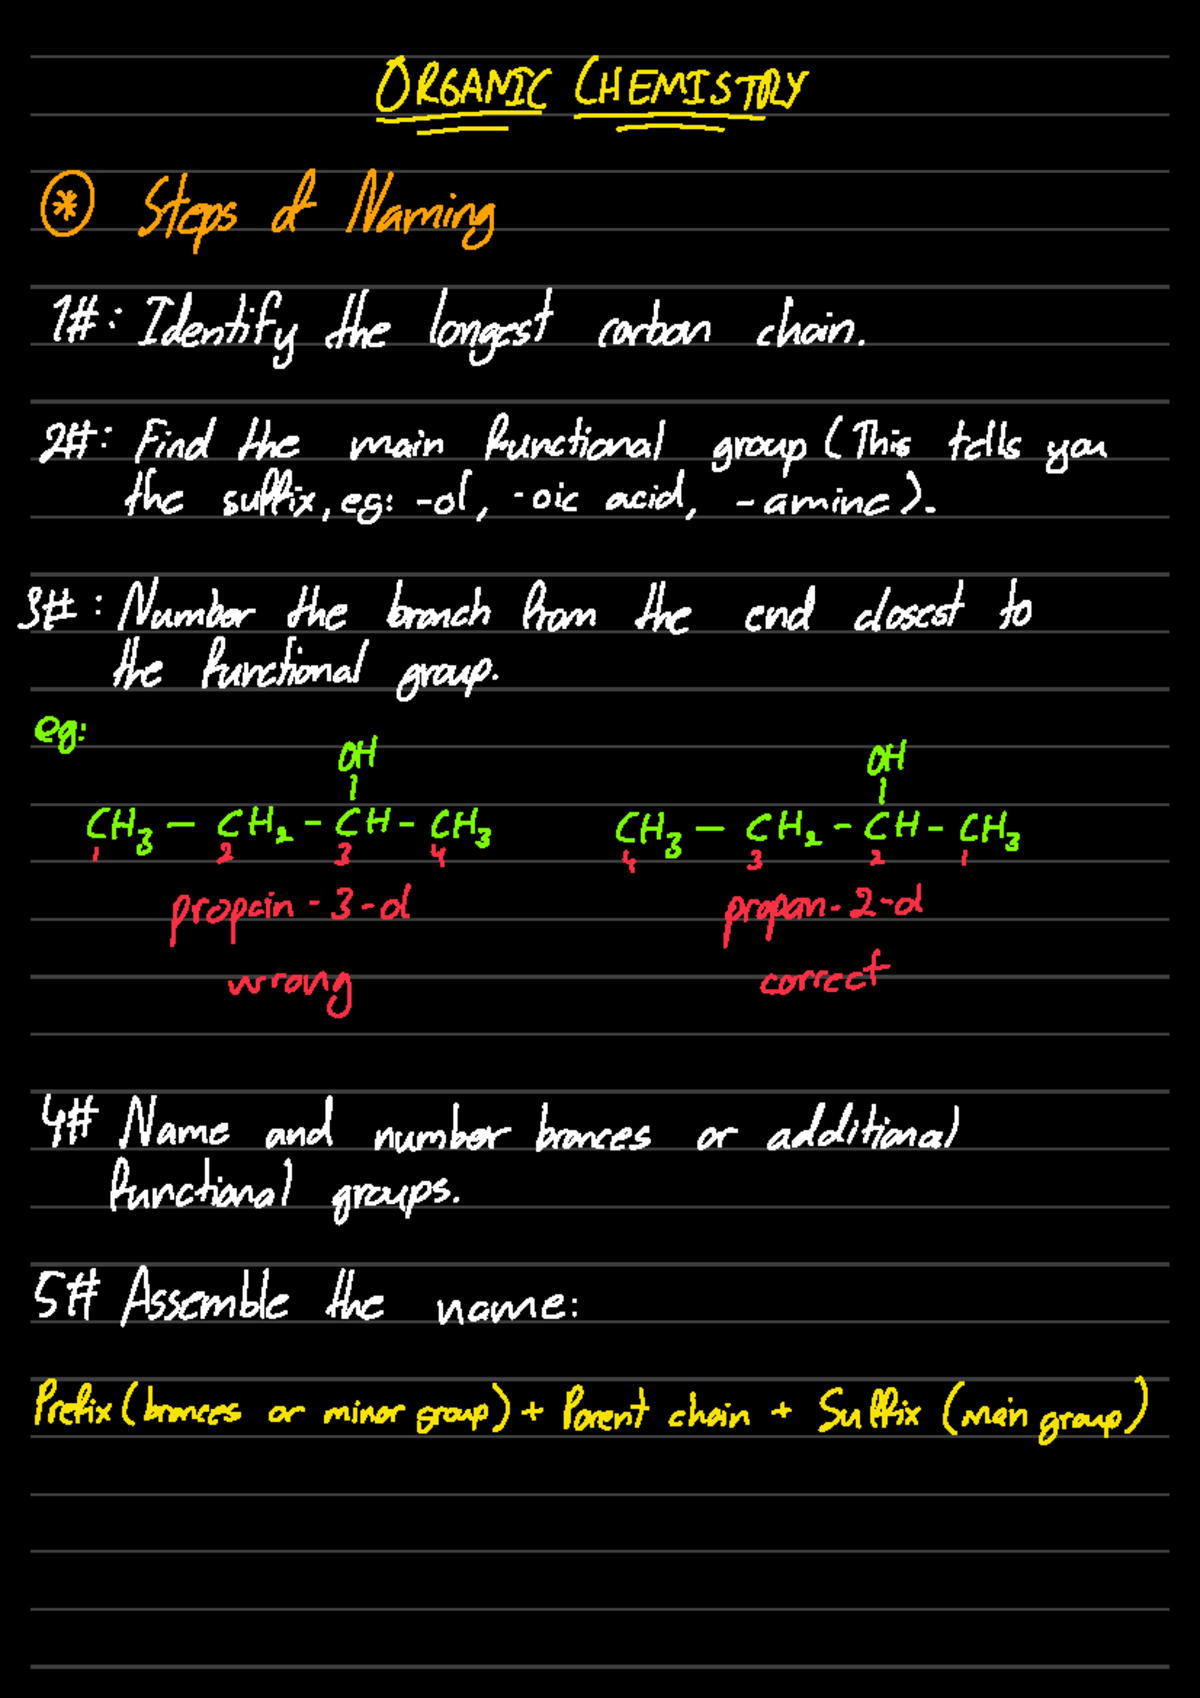 ORGANIC CHEMISTRY
* Steps of Naming
1#: Identify the longest carbon chain.
2#: Find the main functional group (This tells you
the suffix, eg: -ol, -oic acid, -amine).
3#: Number the branch from the end closest to
the functional group.
eg:
OH OH
CH3 – CH2 – CH – CH3 CH3 – CH2 – CH – CH3
1 2 3 4 4 3 2 1
propan - 3 - ol propan - 2 - ol
wrong correct
4# Name and number brances or additional
functional groups.
5# Assemble the name:
Prefix (brances or minor group) + Parent chain + Suffix (main group)